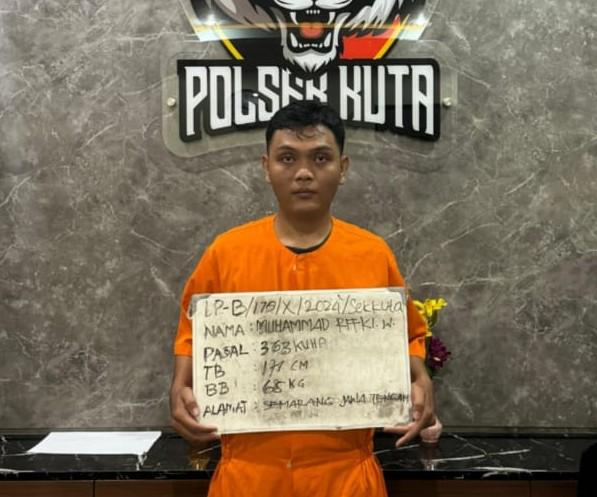 POLSEK KUTA
LP-B/179/X/2024/SekKuta
NAMA : MUHAMMAD RFFKI. W.
PASAL : 363 KUHP
TB : 171 CM
BB : 68 KG
ALAMAT : SEMARANG JAWA TENGAH